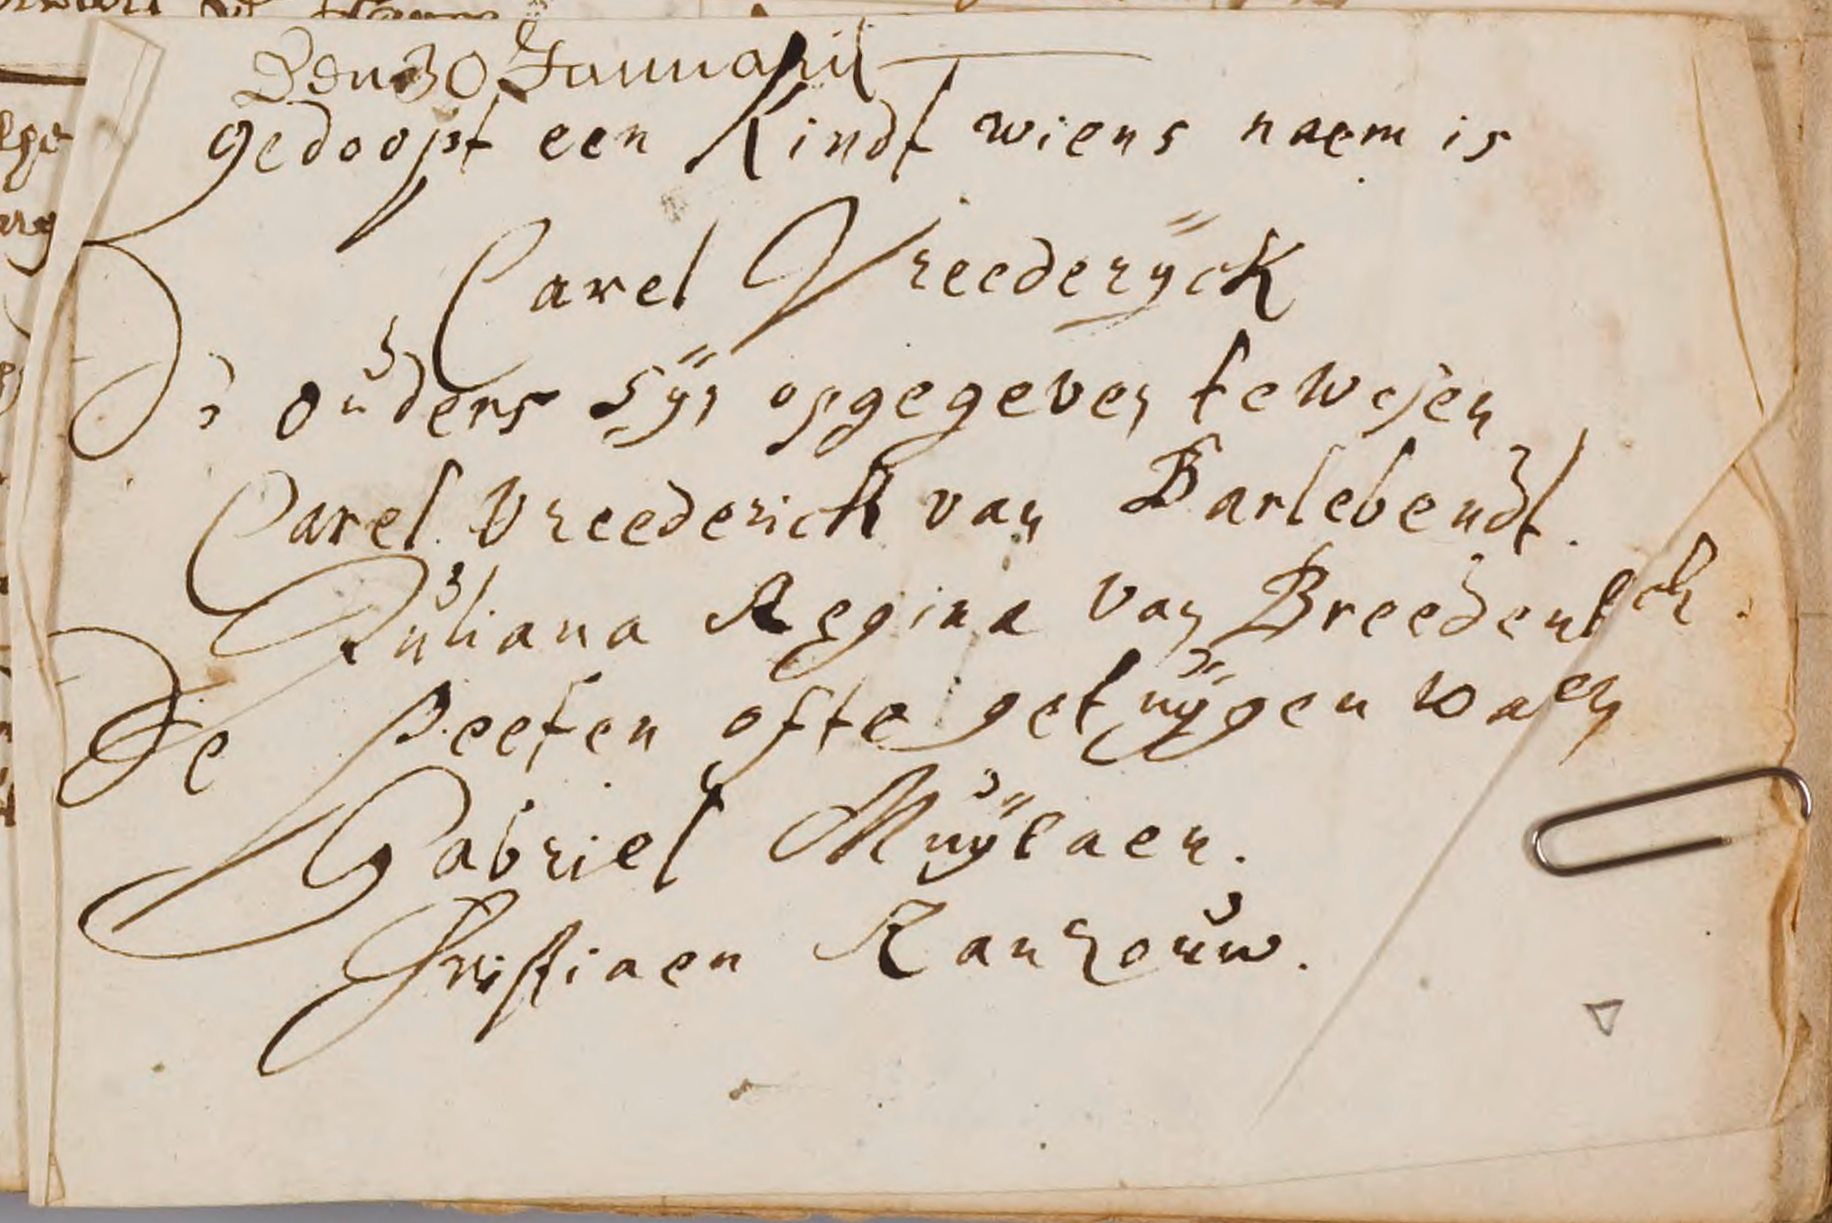 Den 30 Januarij
gedoopt een Kindt wiens naem is
Carel Vreederÿck
De ouders sÿn opgegeven te wesen
Carel Vreederick van Barlebendt.
Juliana Regina van Breedentsch.
De Peeten ofte getuÿgen waren
Gabriel Muÿlaer.
Cristiaen Ranzouw.